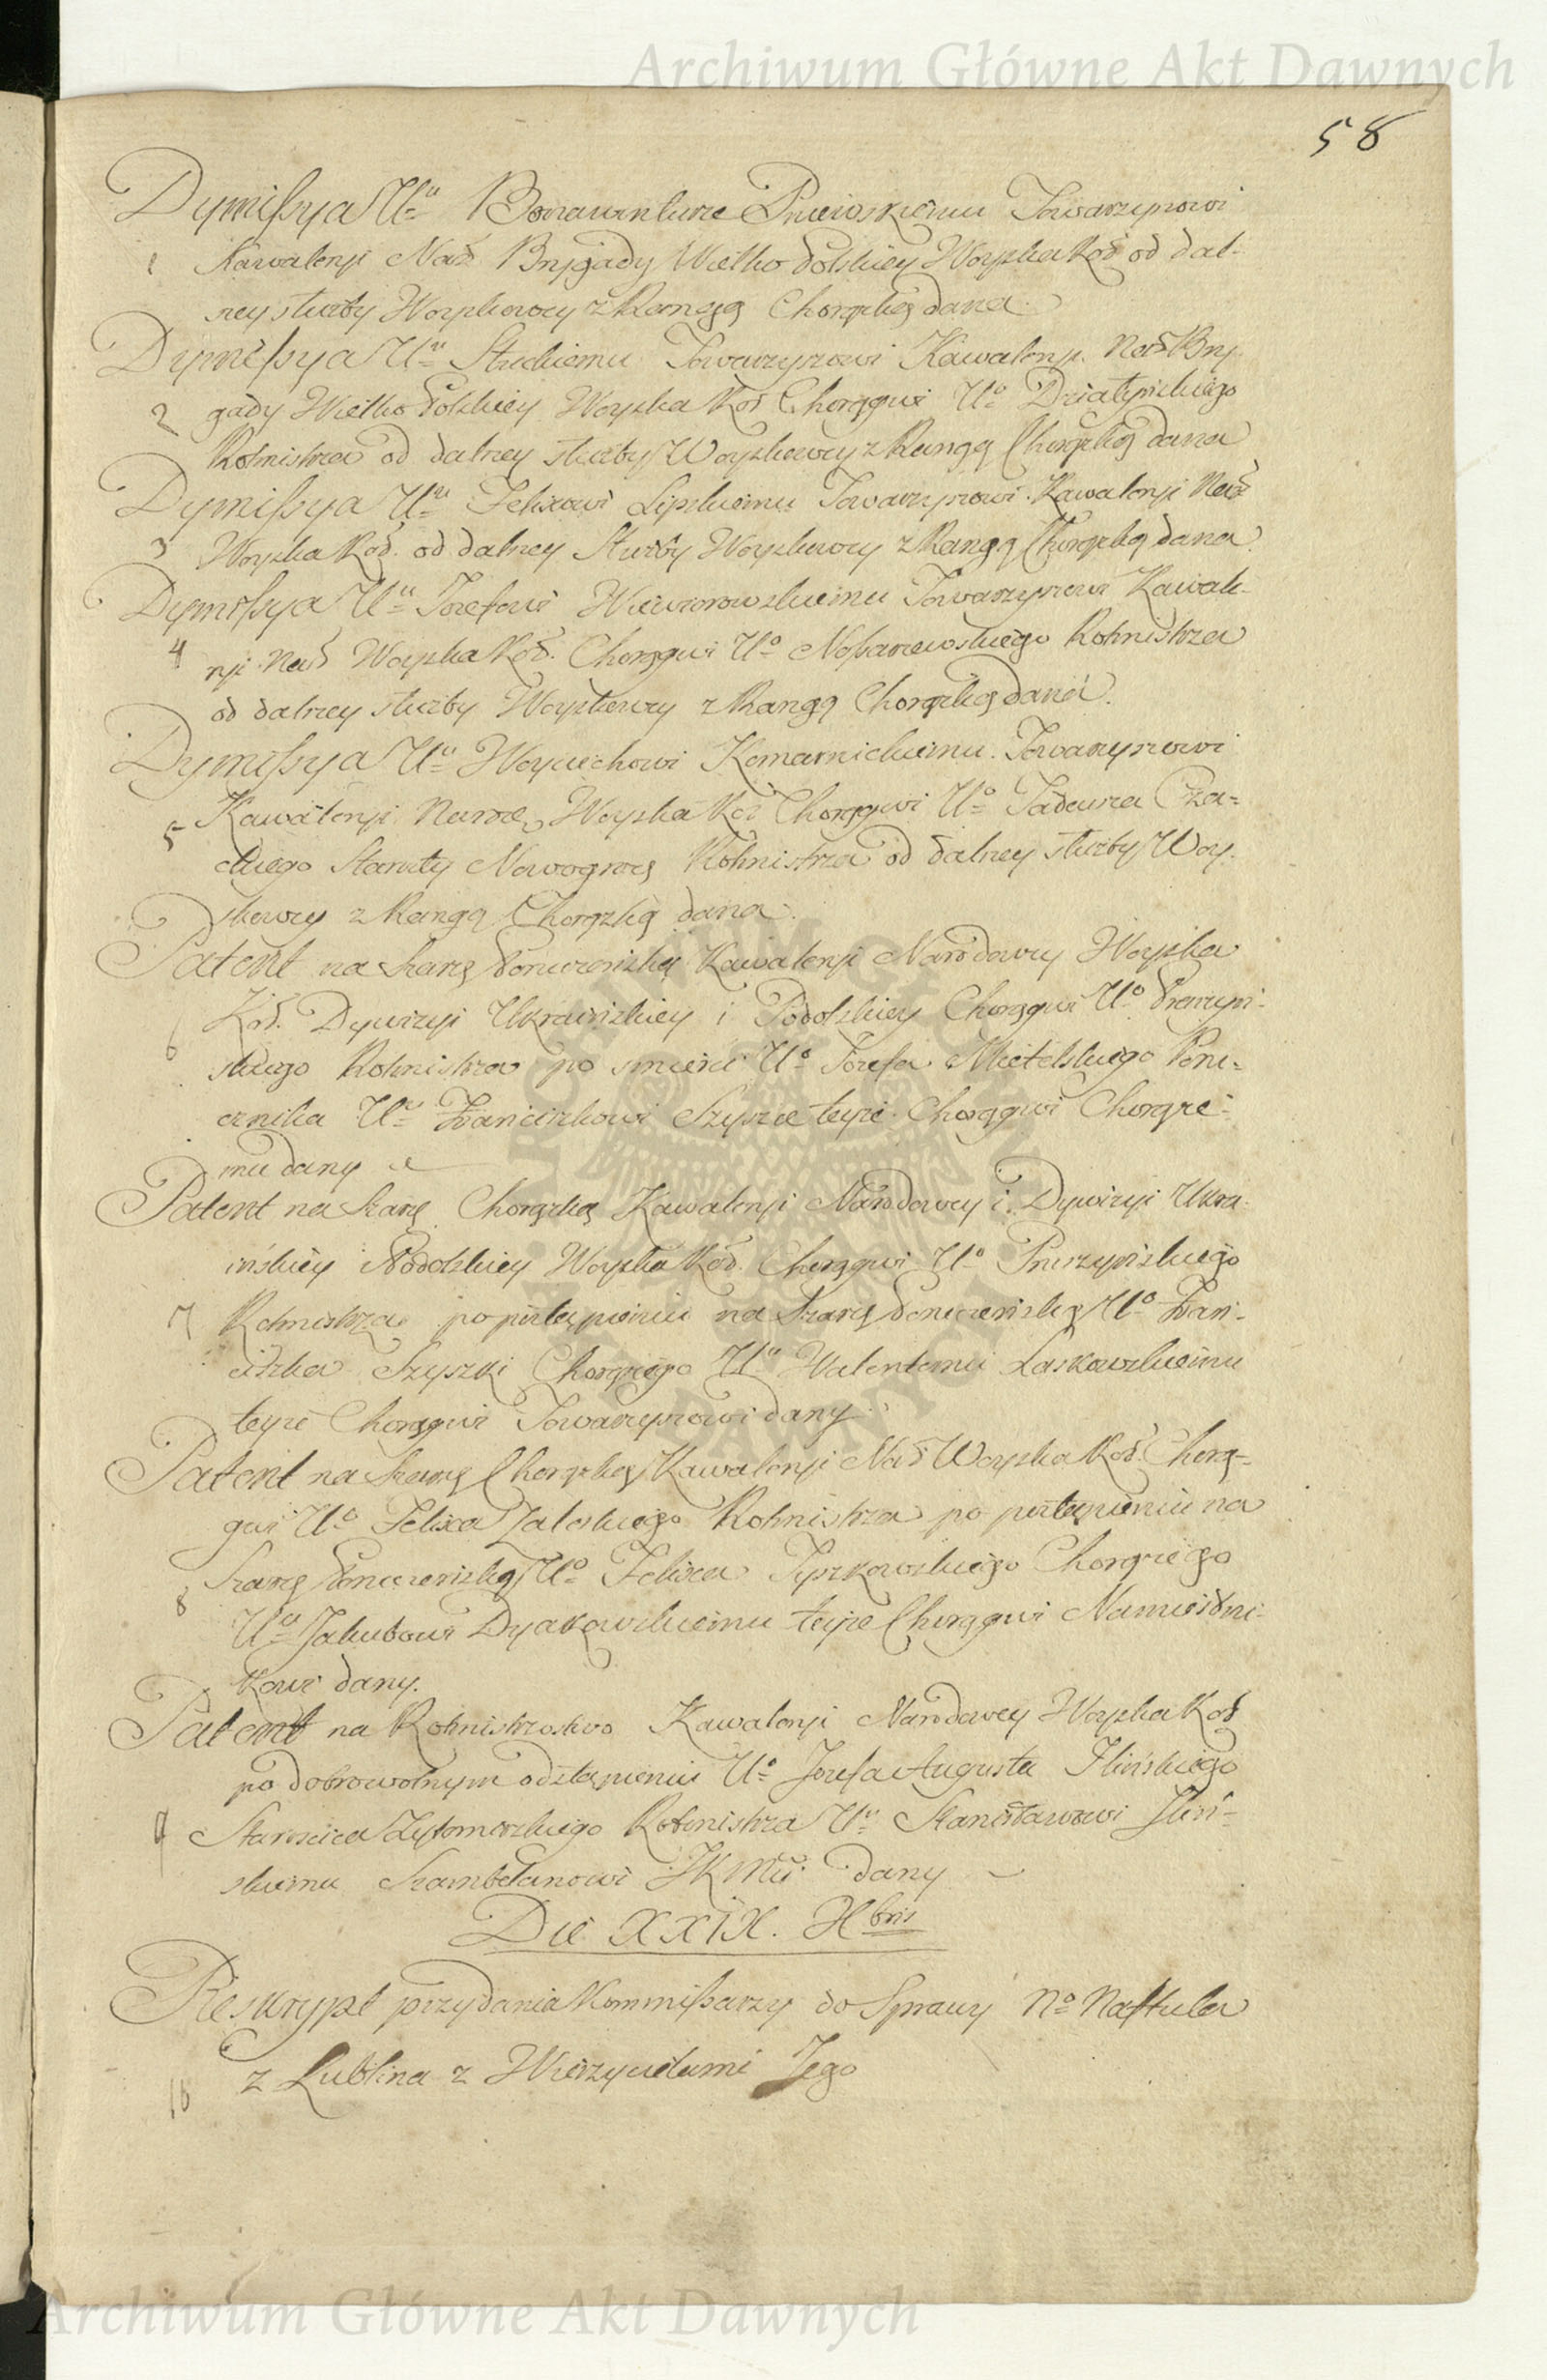 Archiwum Główne Akt Dawnych
58
Dymissya U<sup>u</sup> Bonawenturze Pniewskiemu Towarzyszowi
1 Kawaleryi Nar̃ Brygady Wielko Polskiey Woyska Kor̃ od dal-
szey służby Woyskowey z Rangą Chorążką dana
Dymissya U<sup>u</sup> Towarzyszowi Kawaleryi Nar̃ Bry-
2 gady Wielko Polskiey Woyska Kor̃ Chorągwi U<sup>o</sup> Działyńskiego
Rotmistrza od dalszey służby Woyskowey z Rangą Chorążką dana
Dymissya U<sup>u</sup> Felixowi Lipskiemu Towarzyszowi Kawaleryi Nar̃
3 Woyska Kor̃. od dalszey Służby Woyskowey z Rangą Chorążką dana.
Dymissya U<sup>u</sup> Jozefowi Wiewiorowskiemu Towarzyszowi Kawale-
4 ryi Nar̃ Woyska Kor̃. Chorągwi U<sup>o</sup> Rotmistrza
od dalszey służby Woyskowey z Rangą Chorążką dana.
Dymissya U<sup>u</sup> Woyciechowi Komarnickiemu Towarzyszowi
5 Kawaleryi Narod̃ Woyska Kor̃ Chorągwi U<sup>o</sup> Tadeusza Cza-
ckiego Starosty Nowogrodz Rotmistrza od dalszey służby Woy-
skowey z Rangą Chorążką dana.
Patent na szarżę Poruczeńską Kawaleryi Narodowey Woyska
6 Kor̃. Dywizyi Ukraińskiey i Podolskiey Chorągwi U<sup>o</sup> Pruszyń-
skiego Rotmistrza po smierci U<sup>o</sup> Jozefa Mietelskiego Poru-
cznika U<sup>u</sup> Franciszkowi Szyszce teyże Chorągwi Chorąże-
mu dany
Patent na szarżę Chorążką Kawaleryi Narodowey i Dywizyi Ukra-
ińskiey Podolskiey Woyska Kor̃. Chorągwi U<sup>o</sup> Pruszyńskiego
7 Rotmistrza po postąpieniu na szarżę Poruczeńską U<sup>o</sup> Fran-
ciszka Szyszki Chorążego U<sup>u</sup> Walentemu Laskowskiemu
teyże Chorągwi Towarzyszowi dany
Patent na szarżę Chorążką Kawaleryi Nar̃ Woyska Kor̃. Chorą-
gwi U<sup>o</sup> Felixa Zaleskiego Rotmistrza po postąpieniu na
8 Szarżę Poruczeńską U<sup>o</sup> Felixa Tyszkowskiego Chorążego
U<sup>u</sup> Jakubowi Dyakowskiemu teyże Chorągwi Namiestni-
kowi dany.
Patent na Rotmistrzostwo Kawaleryi Narodowey Woyska Kor̃
po dobrowolnym odstąpieniu U<sup>o</sup> Jozefa Augusta Ilińskiego
9 Starościca Zytomirskiego Rotmistrza U<sup>u</sup> Stanisławowi Iliń-
skiemu Szambelanowi JKMci dany
Die XXIX. X<sup>bris</sup>
Reskrypt przydania Kommissarzy do Sprawy N<sup>o</sup> Naftula
10 z Lublina z Wierzycielami Jego
Archiwum Główne Akt Dawnych